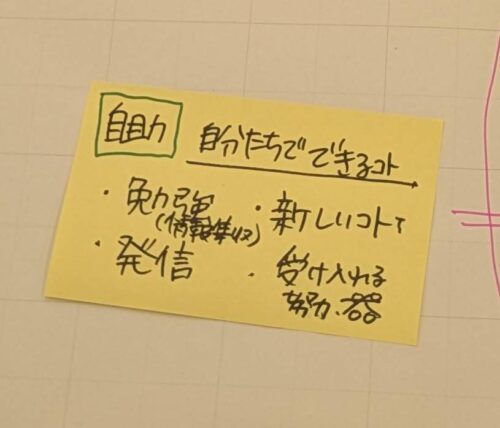 自助
自分たちでできるコト
・勉強
(情報集収)
・発信
・新しいコトて
・受け入れる
努力、器